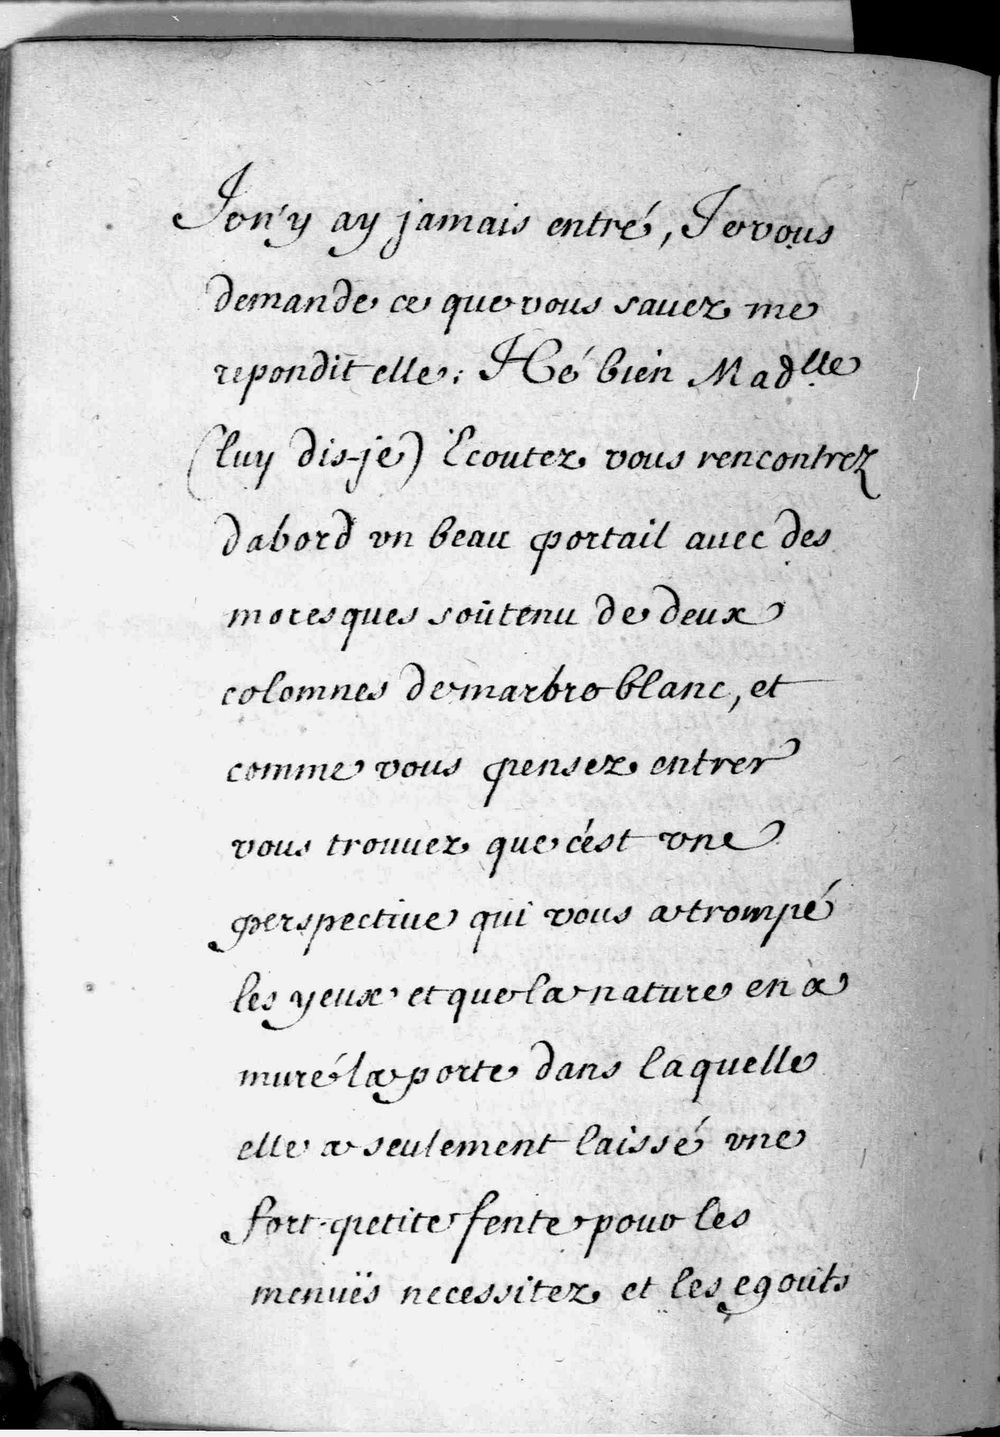 Je n'y ay jamais entré, Je vous
demande ce que vous sauez me
repondit elle; Hé bien Madlle
(luy dis-je) Ecoutez vous rencontrez
dabord vn beau portail auec des
moresques soûtenu de deux
colomnes de marbre blanc, et
comme vous pensez entrer
vous trouuez que c'est vne
perspectiue qui vous a trompé
les yeux et que la nature en a
muré la porte dans laquelle
elle a seulement laissé vne
fort petite fente pour les
menuës necessitez et les egouts